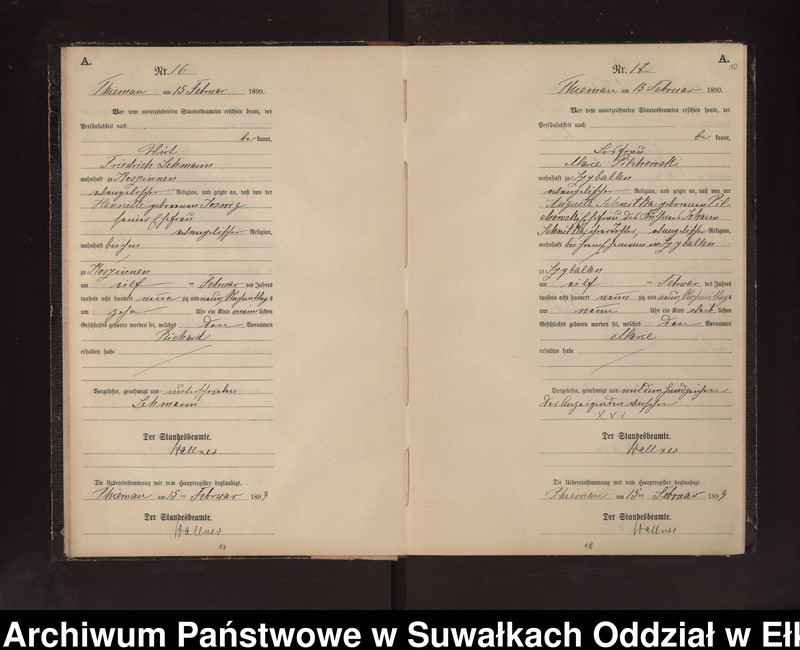 A.
Nr. 16
Thiemau am 15 Februar 1899.
Vor dem unterzeichneten Standesbeamten erschien heute, der
Persönlichkeit nach
be kannt,
Wirt
Friedrich Lehmann
wohnhaft zu Koszinnen
evangelischer Religion, und zeigte an, daß von der
Henriette geborenen
seiner Ehefrau
evangelischer Religion,
wohnhaft bei ihm
zu Koszinnen
am elf ten Februar des Jahres
tausend acht hundert neun zig und neun Vormittags
um zehn Uhr ein Kind männlichen
Geschlechts geboren worden sei, welches den Vornamen
Richard
erhalten habe
Vorgelesen, genehmigt und unterschrieben
Lehmann
Der Standesbeamte.
Wallner
Die Uebereinstimmung mit dem Hauptregister beglaubigt.
Thiemau am 15ten Februar 1899
Der Standesbeamte.
Wallner
17
A.
10
Nr. 17
Thiemau am 15 Februar 1899.
Vor dem unterzeichneten Standesbeamten erschien heute, der
Persönlichkeit nach
be kannt,
Losfrau
Marie Pilchowski
wohnhaft zu Czyballen
evangelischer Religion, und zeigte an, daß von der
Auguste geborenen Pil
chowski Ehefrau des Johann
ihrer Tochter, evangelischer Religion,
wohnhaft bei ihrem Ehemann in Czyballen
zu Czyballen
am elf ten Februar des Jahres
tausend acht hundert neun zig und neun Vormittags
um neun Uhr ein Kind weib lichen
Geschlechts geboren worden sei, welches den Vornamen
Marie
erhalten habe
Vorgelesen, genehmigt und mit dem Handzeichen
der Anzeigenden versehen
X X X
Der Standesbeamte.
Wallner
Die Uebereinstimmung mit dem Hauptregister beglaubigt.
Thiemau am 15ten Februar 1899
Der Standesbeamte.
Wallner
18
Archiwum Państwowe w Suwałkach Oddział w Ełk